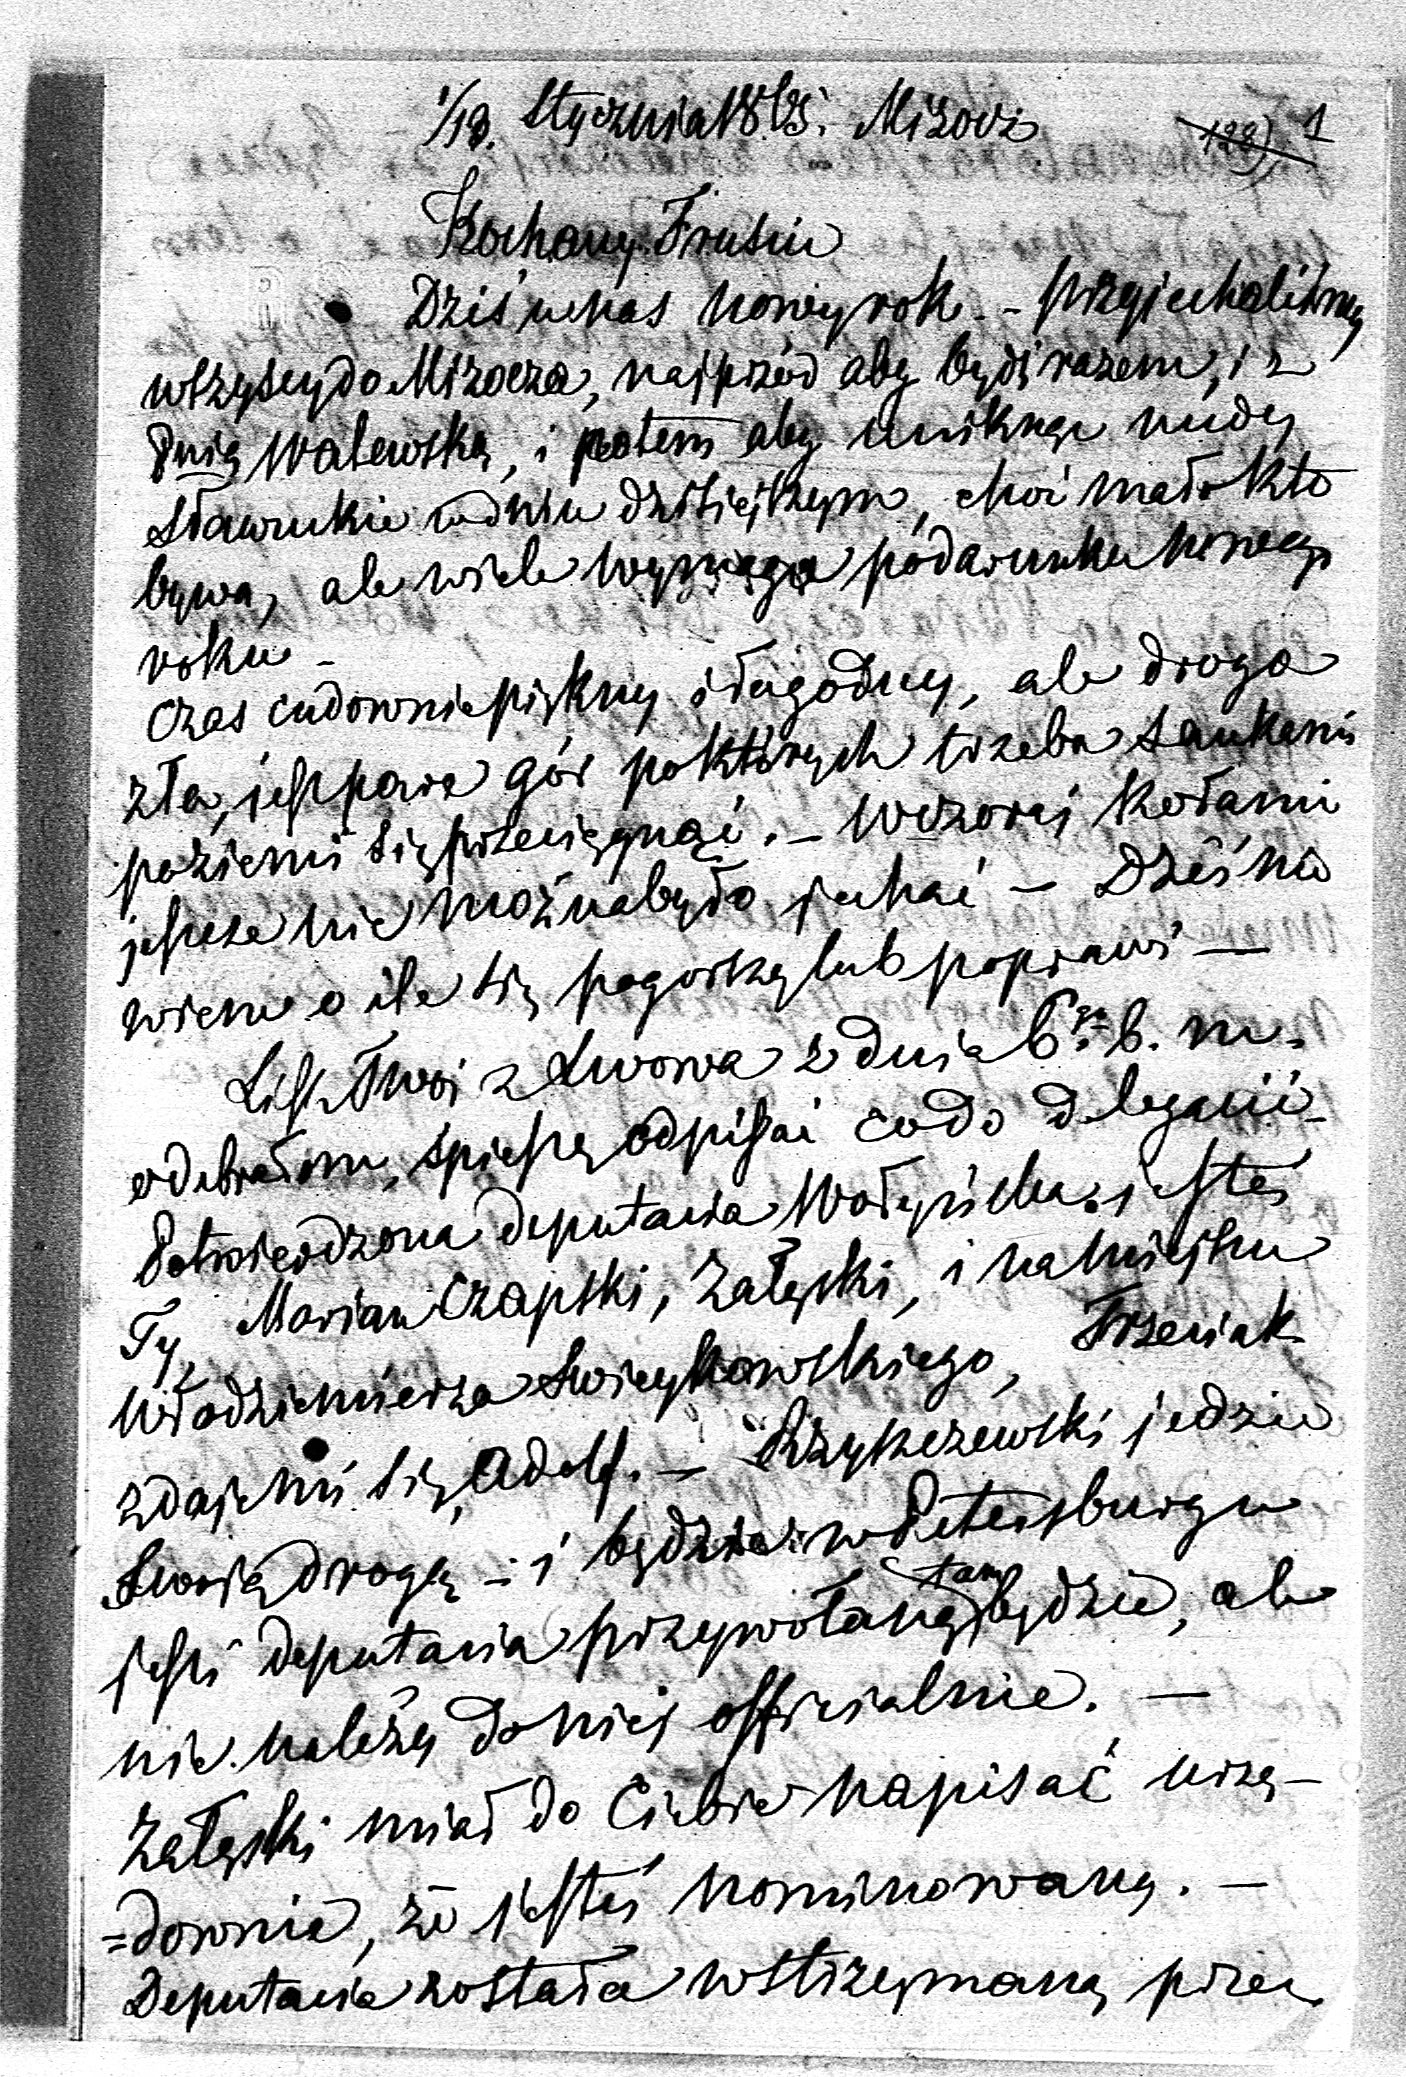 1/13. Stycznia 1865. Mizocz
128) 1
Kochany Frusiu
Dziś u nas nowy rok. - przyjechaliśmy
wszyscy do Mizocza, najprzód aby być razem, i z
Pnią Walewską, i potem aby uniknąć nudy
Sławuckie w dniu dzisiejszym, choć mało kto
bywa, ale wiele wymaga podarunku nowego
roku -
Czas cudownie piękny i łagodny, ale droga
zła, jest parę gór po których trzeba sankami
po ziemi się przeciągnąć. - Wczoraj kołami
jeszcze nie można było jechać - Dziś nie
wiem o ile się pogorszy lub poprawi -
List Twój z Lwowa z dnia 6go b. m.
odebrałem, śpieszę odpisać co do delegacii -
Potwierdzona deputacia Wołyńska. jesteś
Ty, Marian Czapski, Załęski, i na miejscu
Włodzimierza Swieykowskiego, Trzeciak
zdaje mi się, Adolf. - Rzyszczewski jedzie
Swoją drogą - i będzie w Petersburgu
jeśli deputacia przywołaną tam będzie, ale
nie należy do niej officialnie. -
Załęski miał do Ciebie napisać urzę-
=downie, że jesteś nominowany. -
Deputacia została wstrzymaną przez